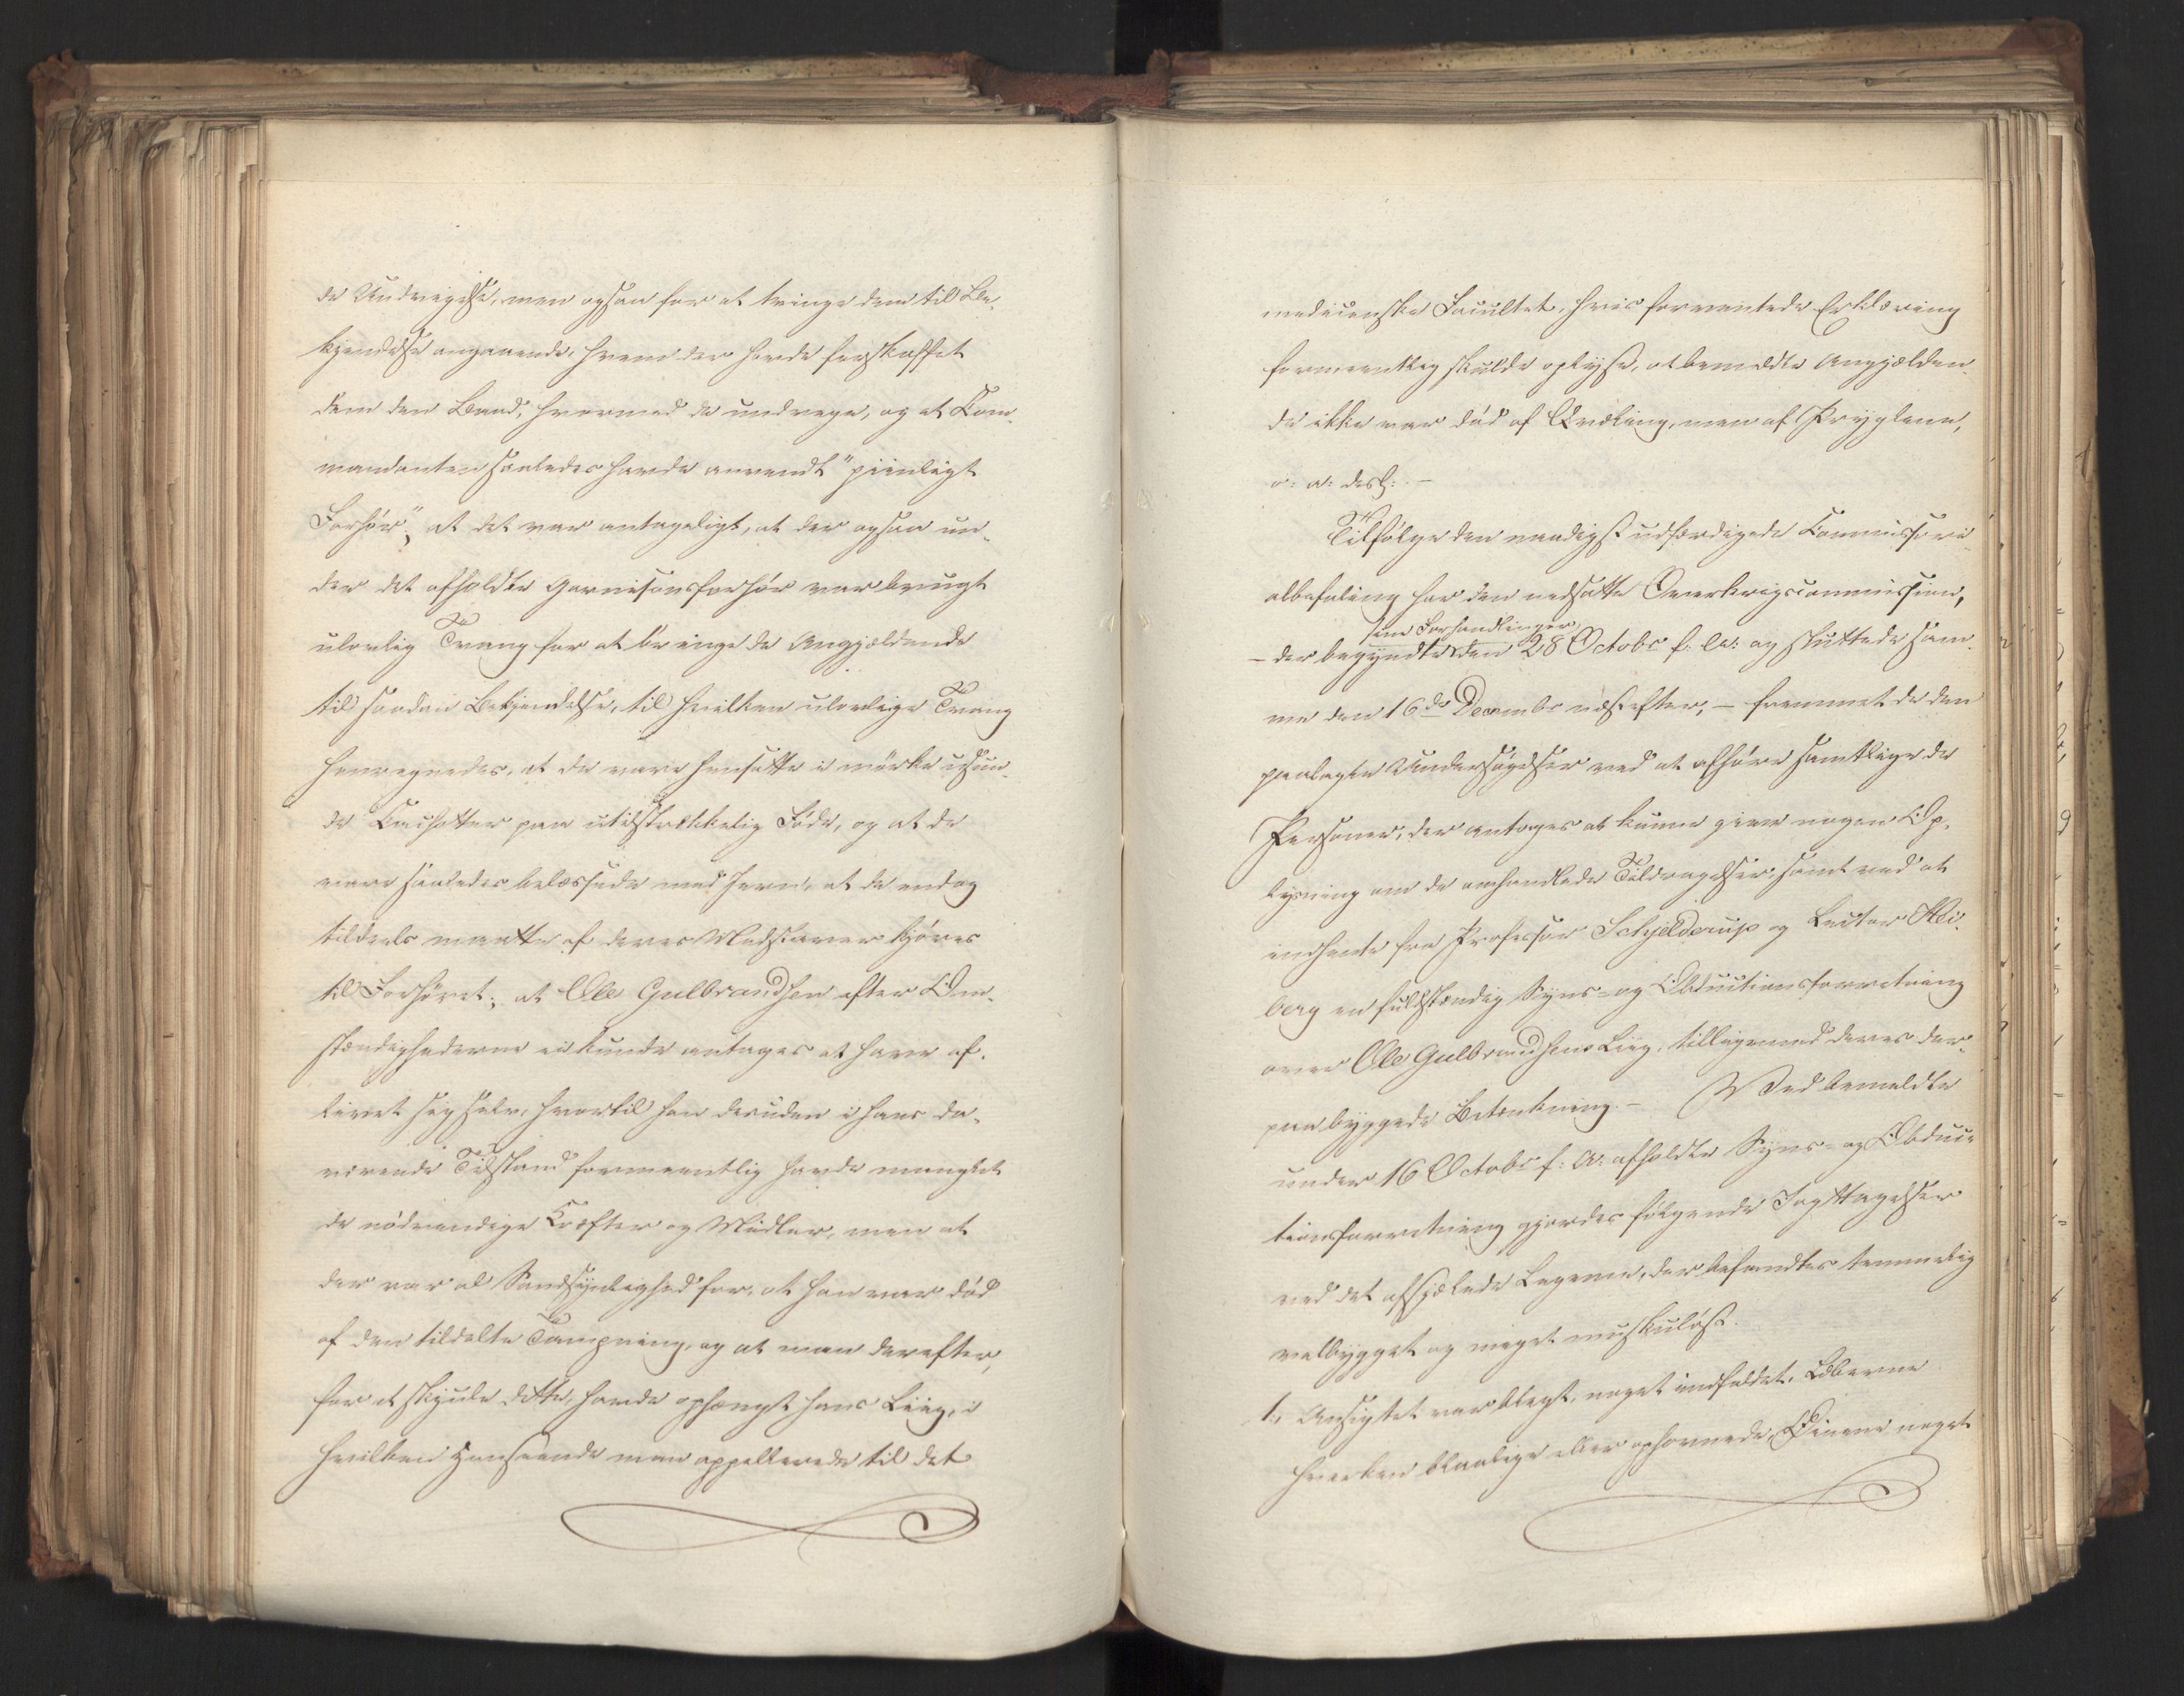 de Undvigelse, men ogsaa for at tvinge dem til Be-
kjendelse angaaende, hvem der havde forskaffet
dem den Baad, hvormed de undvege, og at Com-
mandanten saaledes havde anvendt "piinligt
Forhør"; at det var antageligt, at der ogsaa un-
der det afholdte Garnisonsforhør var brugt
ulovlig Tvang for at bringe de Angjældende
til saadan Bekjendelse, til hvilken ulovlige Tvang
henregnedes, at de vare hensatte i mørke usun-
de Cachotter paa utilstrækkelig Føde, og at de
vare saaledes belæssede med Jern, at de endog
tildeels maatte af deres Medslaver kjøres
til Forhøret; at Ole Gulbrandsen efter Om-
stændighederne ei kunde antages at have af-
livet sig selv, hvortil han desuden i hans da-
værende Tilstand formeentlig havde manglet
de nødvendige Kræfter og Midler, men at
der var al Sandsynlighed for, at han var død
af den tildelte Tampning, og at man derefter,
for at skjule dette, havde ophængt hans Liig, i
hvilken Henseende man appellerede til det
medicinske Facultet, hvis forventede Erklæring
formeentlig skulde oplyse, at bemeldte Angjælden-
de ikke var død af Qvælning, men af Pryglene,
o: a: desl: –
Tilfølge den naadigst udfærdigede Commissori-
albefaling har den nedsatte Overkrigscommission,
sine Forhandlinger
– der begyndte den 28 Octobr f: A: og sluttede sam-
me den 16de Decembr næstefter, – fremmet de den
paalagte Undersøgelser ved at afhøre samtlige de
Personer, der antages at kunne give nogen Op-
lysning om de omhandlede Tildragelser, samt ved at
indhente fra Professor Schjelderup og Lector Hei-
berg en fuldstændig Syns- og Obductionsforretning
over Ole Gulbrandsens Liig, tilligemed deres der-
paa byggede Betænkning. – Ved bemeldte
under 16 Octobr f: A: afholdte Syns- og Obduc-
tionsforretning gjordes følgende Iagttagelser
ved det afsjælede Legeme, der befandtes temmelig
velbygget og meget muskuløst.
1, Ansigtet var blegt, noget indfaldet, Læberne
hverken blaalige eller ophovnede, Øinene noget